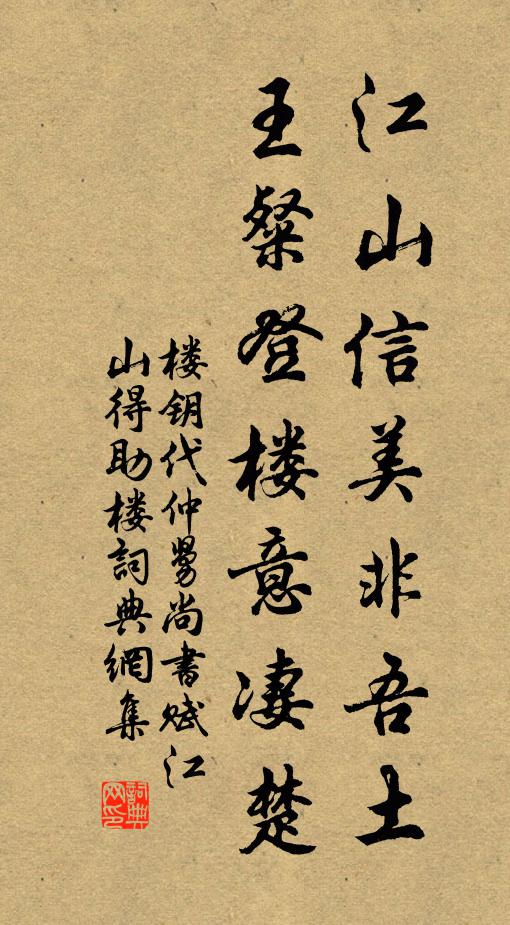 江山信美非吾土
王粲登楼意凄楚
楼钥代仲舅尚書赋江
山得助楼詞典網集
詞典
网印